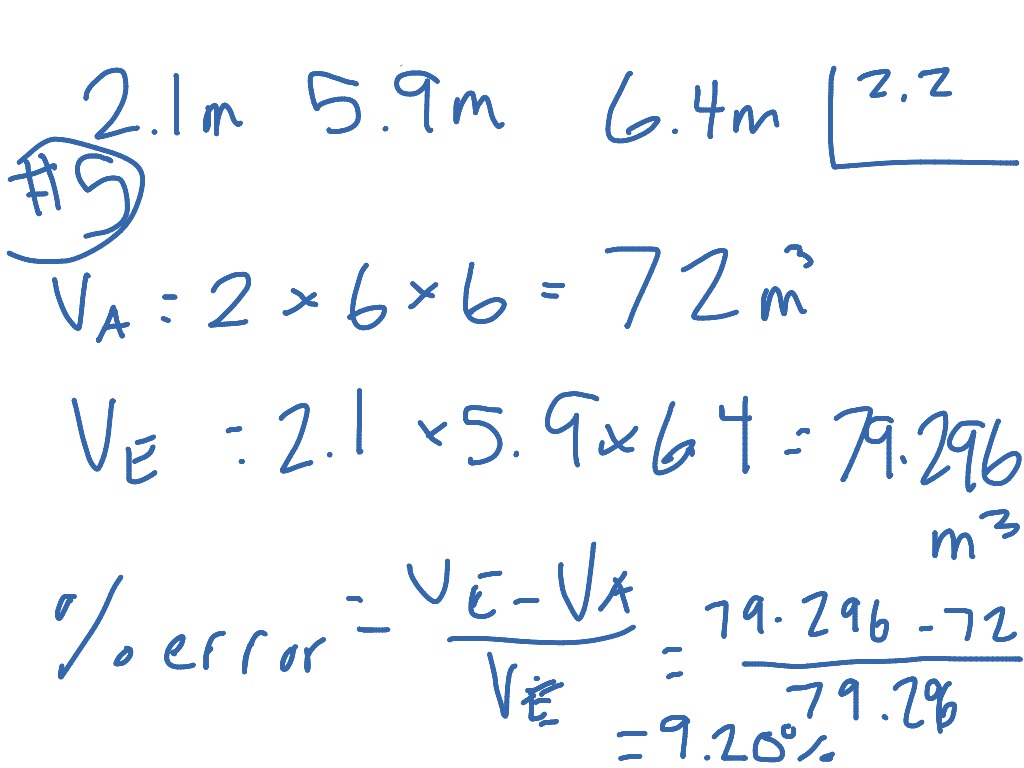 2.1m 5.9m 6.4m 2.2
#5
V_A = 2 × 6 × 6 = 72 m³
V_E = 2.1 × 5.9 × 6 4 = 79.296
m³
% error = V_E - V_A / V_E = 79.296 - 72 / 79.296
= 9.20%